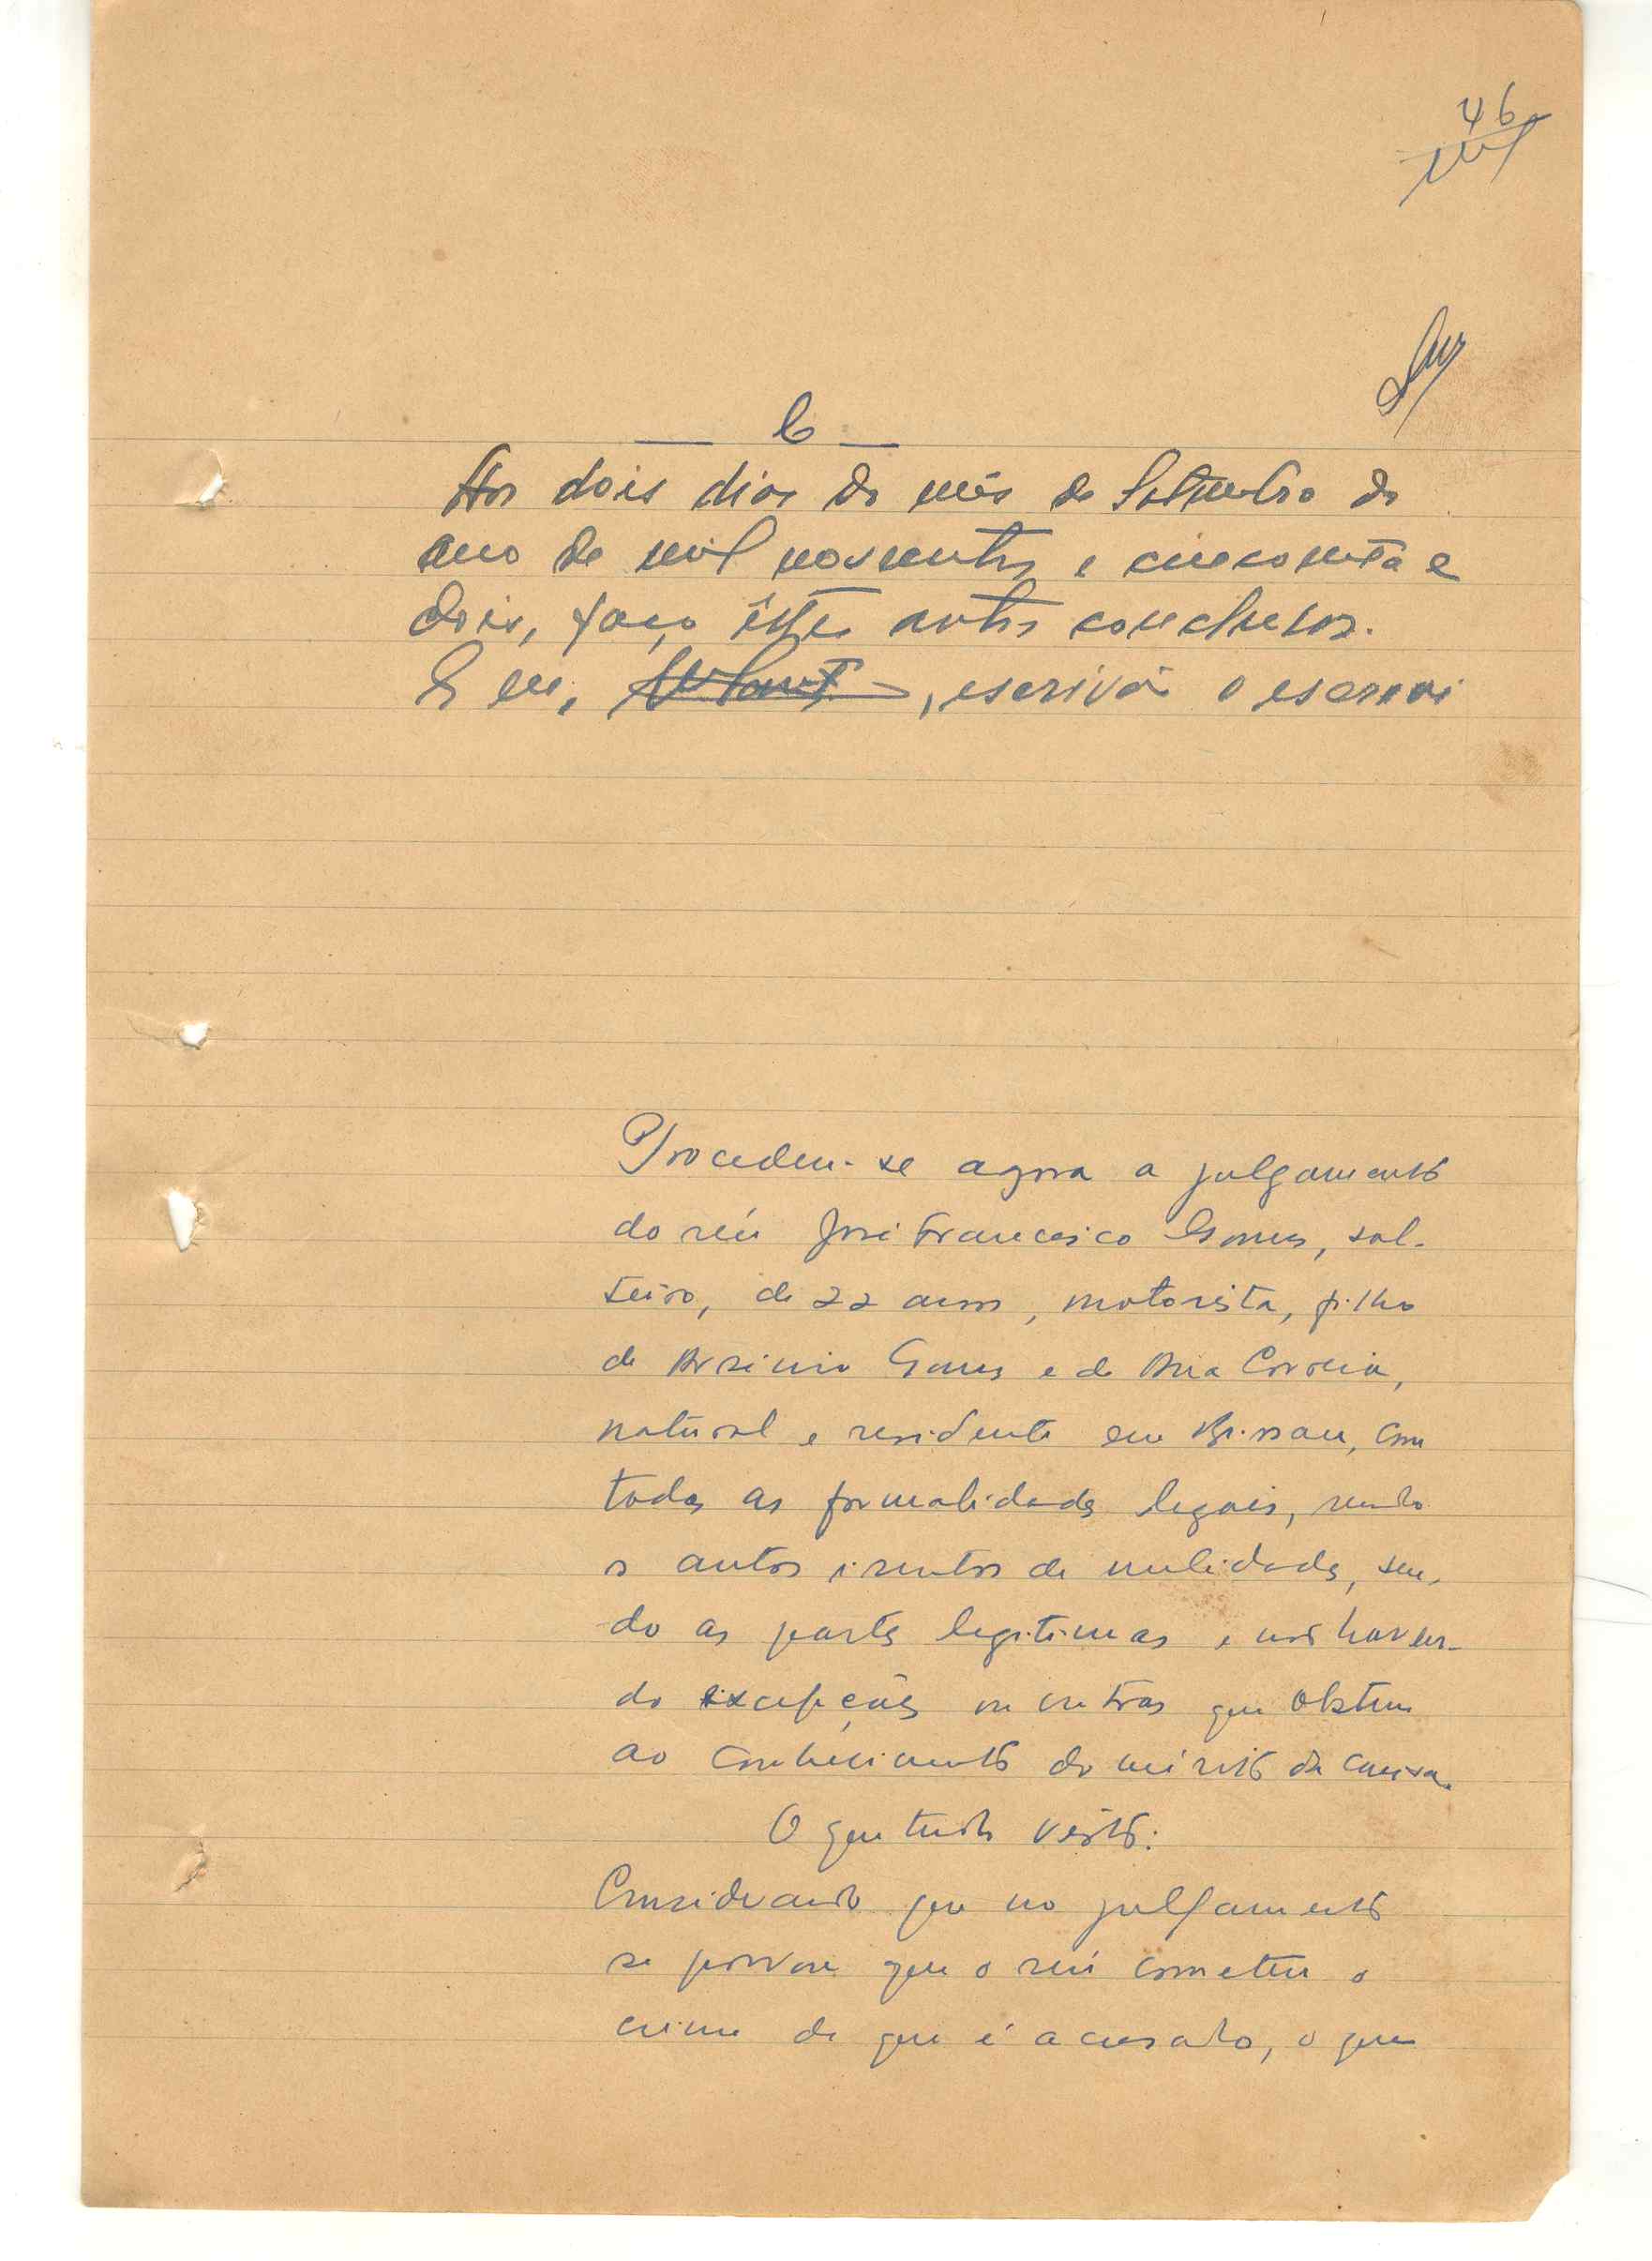 46
Aos dois dias do mês de Setembro do
ano de mil novecentos e cincoenta e
dois, faço êstes autos conclusos.
E eu, , escrivão o escrevi
Procedeu-se agora a julgamento
do réu José Francisco Gomes, sol-
teiro, de 22 anos, motorista, filho
de Arsénio Gomes e de Ana Correia,
natural e residente em Bissau, com
todas as formalidades legais, sendo
os autos isentos de nulidades, sen-
do as partes legitimas e não haven-
do excepções ou outras que obstem
ao conhecimento do mérito da causa.
O que tudo visto:
Considerando que no julgamento
se provou que o réu cometeu o
crime de que é acusado, o que